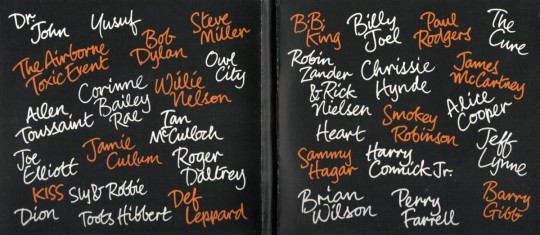 Dr.
John
Yusuf
Steve
Miller
The Airborne
Toxic Event
Bob
Dylan
Owl
City
Corinne
Bailey
Rae
Willie
Nelson
Allen
Toussaint
Ian
McCulloch
Joe
Elliott
Jamie
Cullum
Roger
Daltrey
KISS
Sly & Robbie
Dion
Toots Hibbert
Def
Leppard
B.B.
King
Billy
Joel
Paul
Rodgers
The
Cure
Robin
Zander
& Rick
Nielsen
Chrissie
Hynde
James
McCartney
Alice
Cooper
Heart
Smokey
Robinson
Jeff
Lynne
Sammy
Hagar
Harry
Connick Jr.
Brian
Wilson
Perry
Farrell
Barry
Gibb